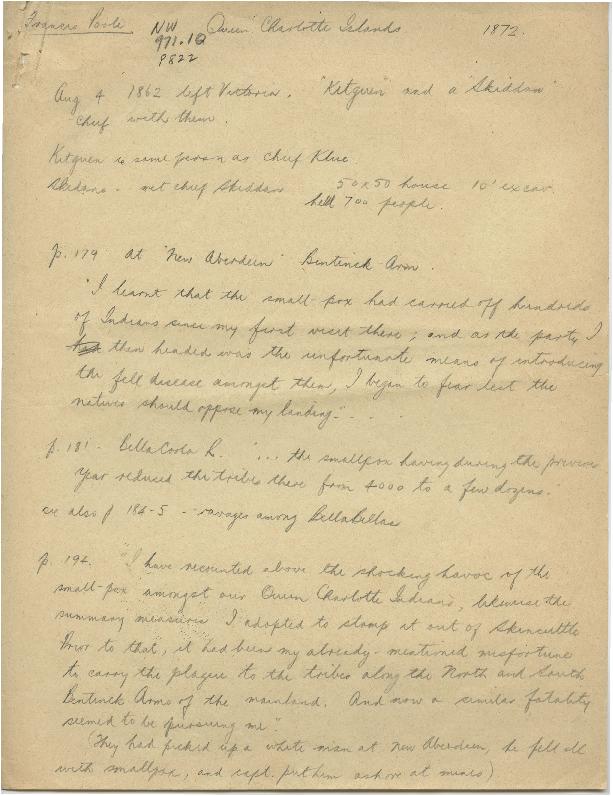 Francis Poole NW Queen Charlotte Islands 1872.
971.12
P822
Aug 4 1862 left Victoria. "Kitguen" and a "Skiddan"
chief with them.
Kitguen is same person as Chief Klue
Skedans - met chief Skiddan 50 x 50 house 10' excav.
held 700 people.
p. 179 At "New Aberdeen" Bentinck Arm.
"I learnt that the small-pox had carried off hundreds
of Indians since my first visit there; and as the party I
then headed was the unfortunate means of introducing
the fell disease amongst them, I began to fear lest the
natives should oppose my landing." - - .
p. 181 - Bella Coola R. "... the smallpox having during the previous
year reduced the tribes there from 4000 to a few dozens."
see also p 184-5 - ravages among BellaBellas
p. 194. "I have recounted above the shocking havoc of the
small-pox amongst our Queen Charlotte Indians, likewise the
summary measures I adopted to stamp it out of Skincuttle
Prior to that, it had been my already-mentioned misfortune
to carry the plague to the tribes along the North and South
Bentinck Arms of the mainland. And now a similar fatality
seemed to be pursuing me".
(They had picked up a white man at New Aberdeen, he fell ill
with smallpox, and capt. put him ashore at mines)